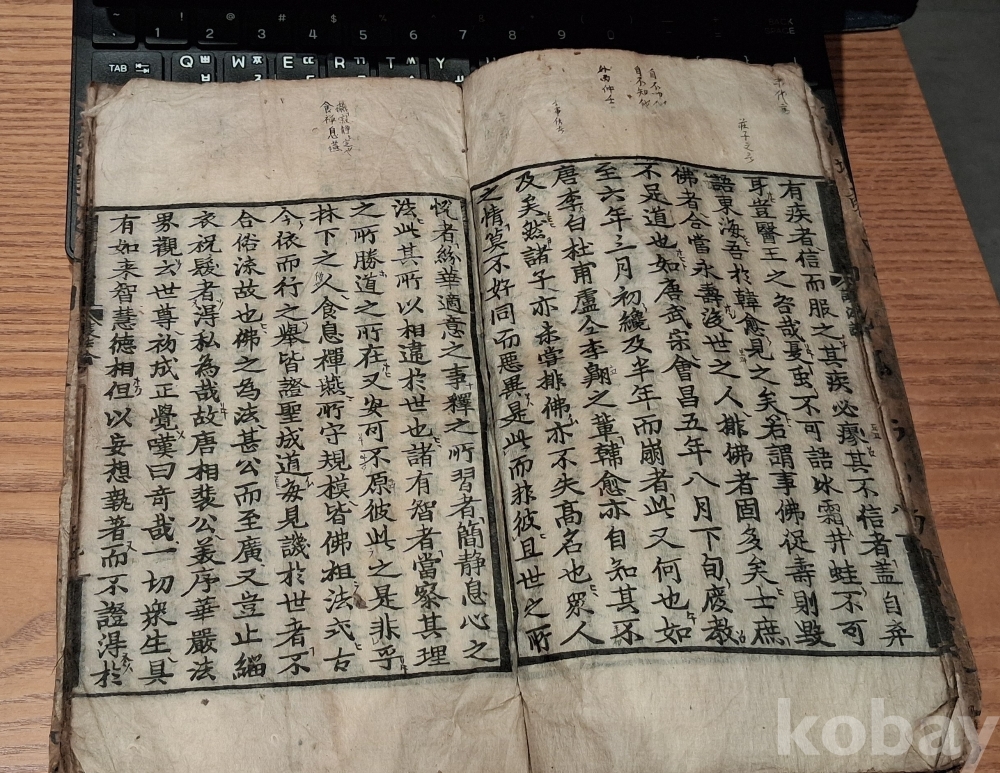 TAB Q W E R T Y
1 2 3 4 5 6 7 8 9 0
有疾者信而服之其疾必瘳其不信者蓋自棄
耳豈醫王之咎哉夏虫不可語冰霜井蛙不可
語東海吾於韓愈見之矣若謂事佛促壽則毀
佛者合當永壽後世之人排佛者固多矣士庶
不足道也如唐武宗會昌五年八月下旬廢教
至六年三月初纔及半年而崩者此又何也如
唐李白杜甫盧仝李翱之輩韓愈亦自知其不
及矣然諸子亦未嘗排佛亦不失高名也衆人
之情莫不好同而惡異是此而非彼且世之所
悅者紛華適意之事釋之所習者簡静息心之
法此其所以相違於世也諸有智者當察其理
之所勝道之所在又安可不原彼此之是非乎
林下之人食息禪燕所守規模皆佛祖法式古
今依而行之舉皆證聖成道每見譏於世者不
合俗流故也佛之為法甚公而至廣又豈止緇
衣祝髮者得私為哉故唐相裴公美序華嚴法
界觀云世尊初成正覺嘆曰奇哉一切衆生具
有如来智慧德相但以妄想執著而不證得於
kobay